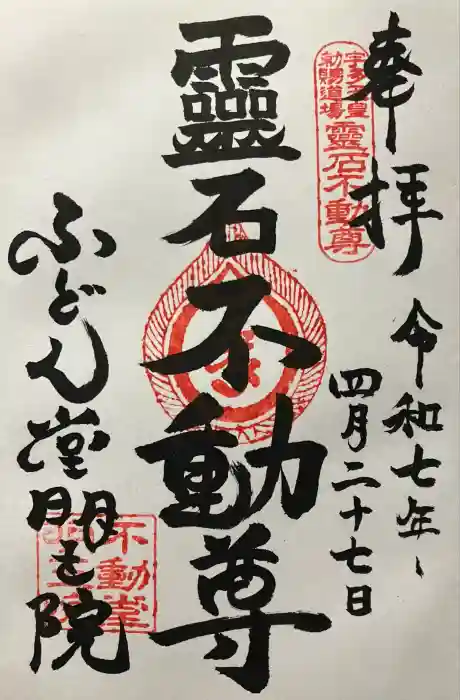 奉拝
令和七年
四月二十七日
宇多天皇
勅賜道場
靈石不動尊
靈石不動尊
ふどん堂明王院
不動堂
明王院